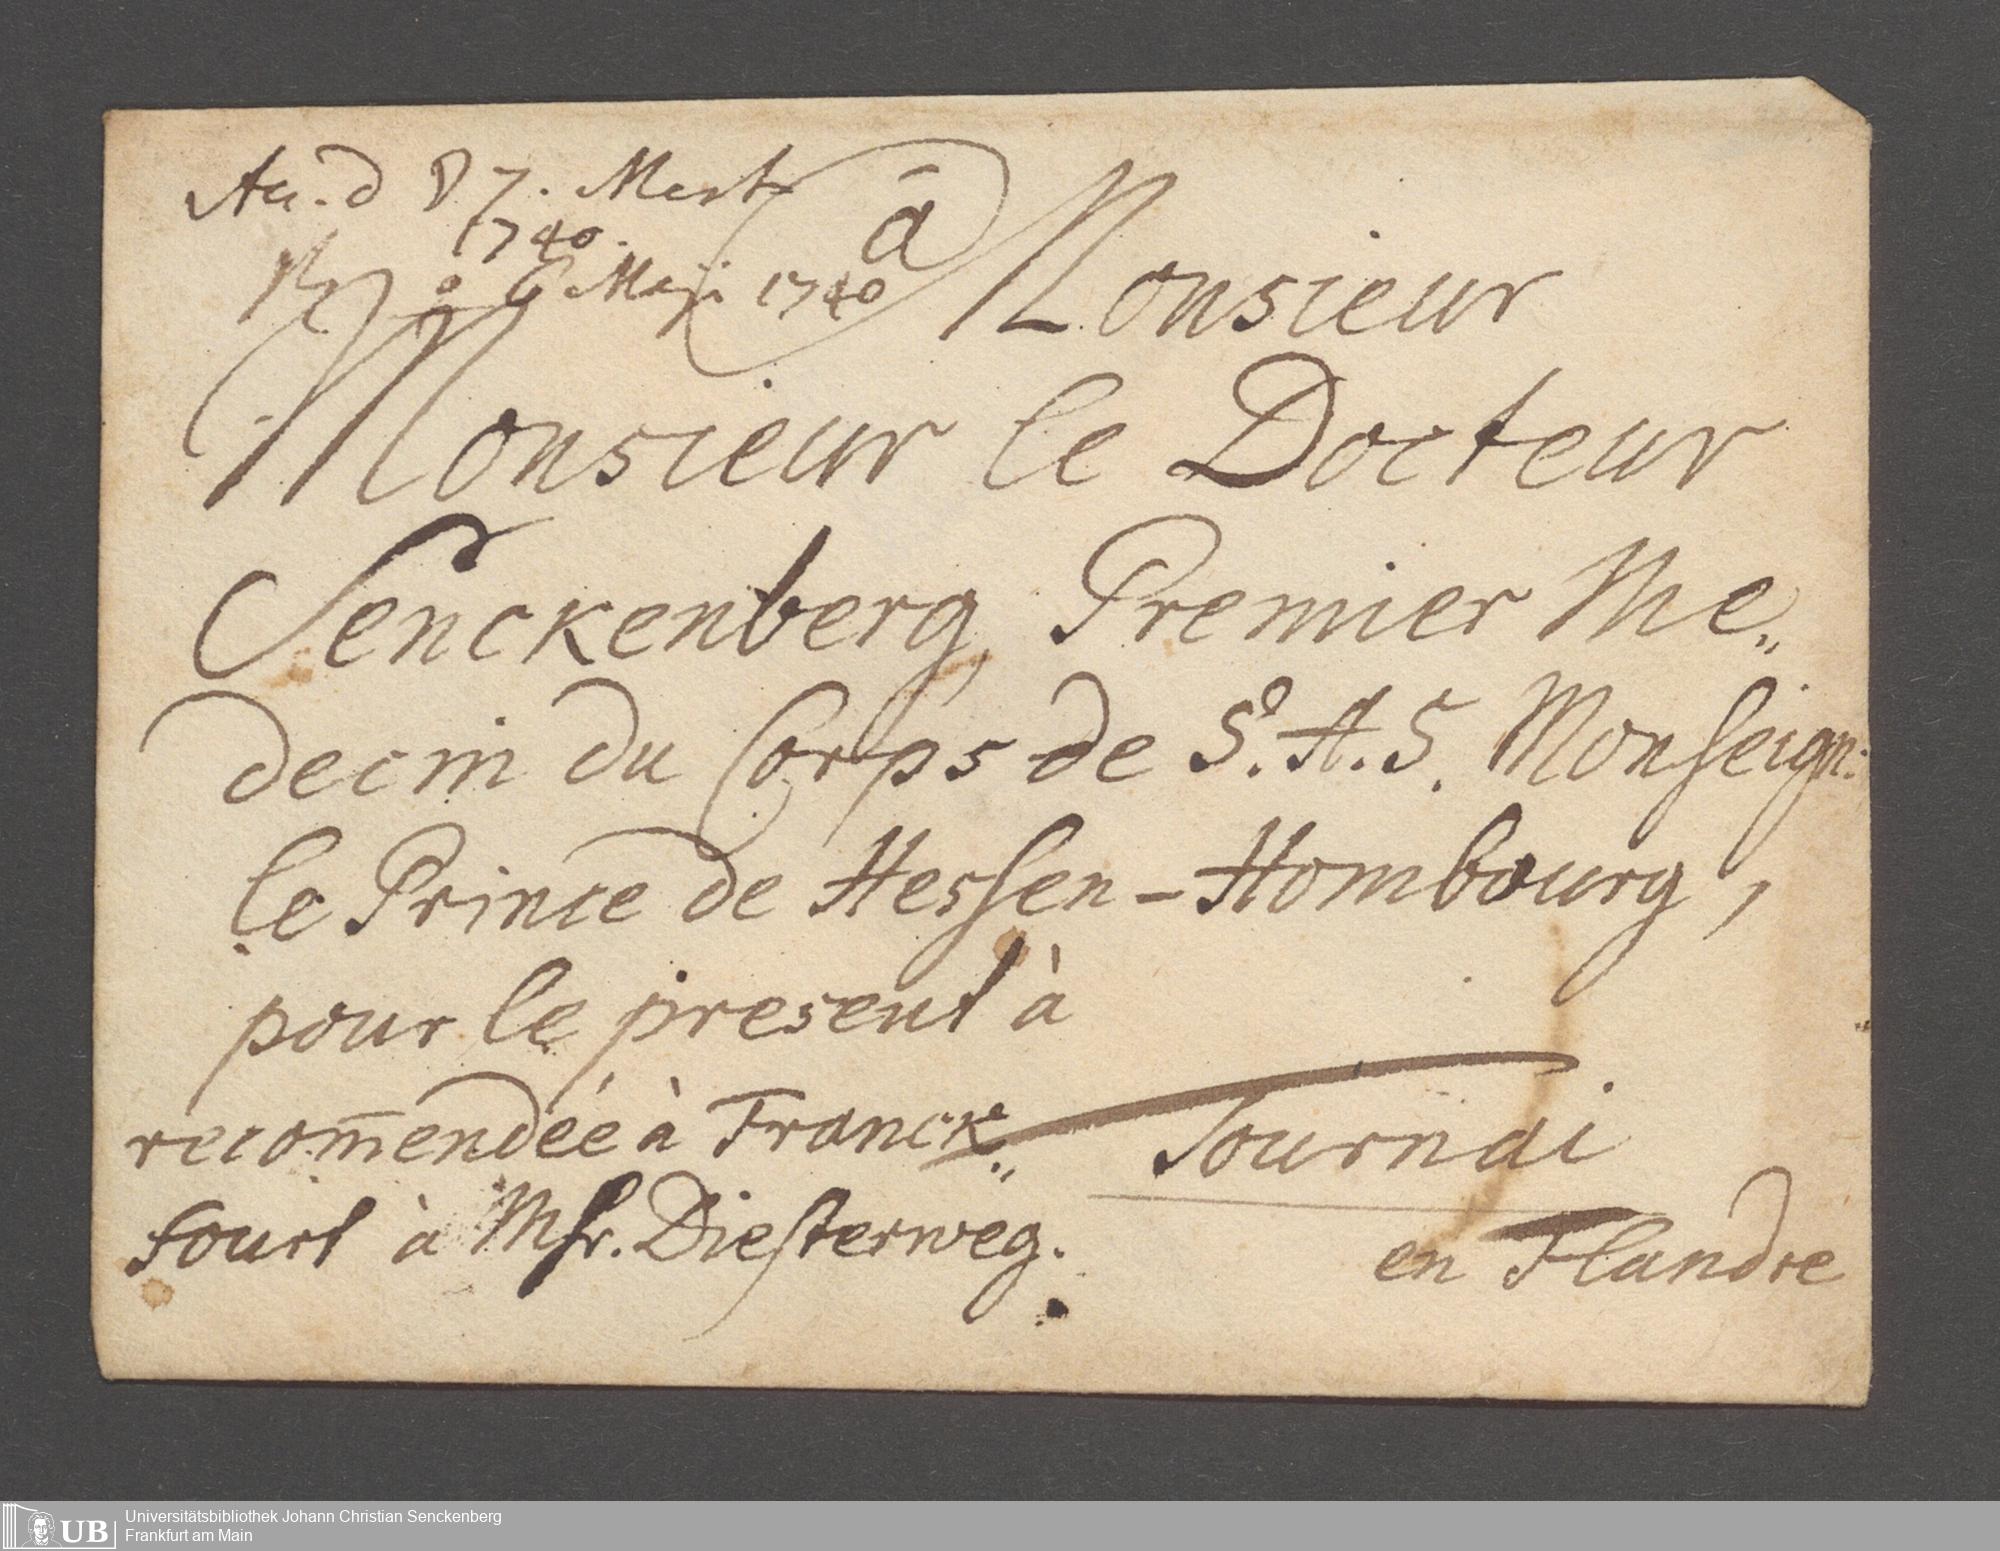 Acc. d 7. Mart.
1740.
6 Maji 1740
à Monsieur
Monsieur le Docteur
Senckenberg, Premier Me„
decin du Corps de S. A. S. Monseign:
le Prince de Hessen-Hombourg,
pour le present à
recom̄endée à Franck„
Tournai
fourt à Msr. Diesterweg.
en Flandre
UB
Universitätsbibliothek Johann Christian Senckenberg
Frankfurt am Main